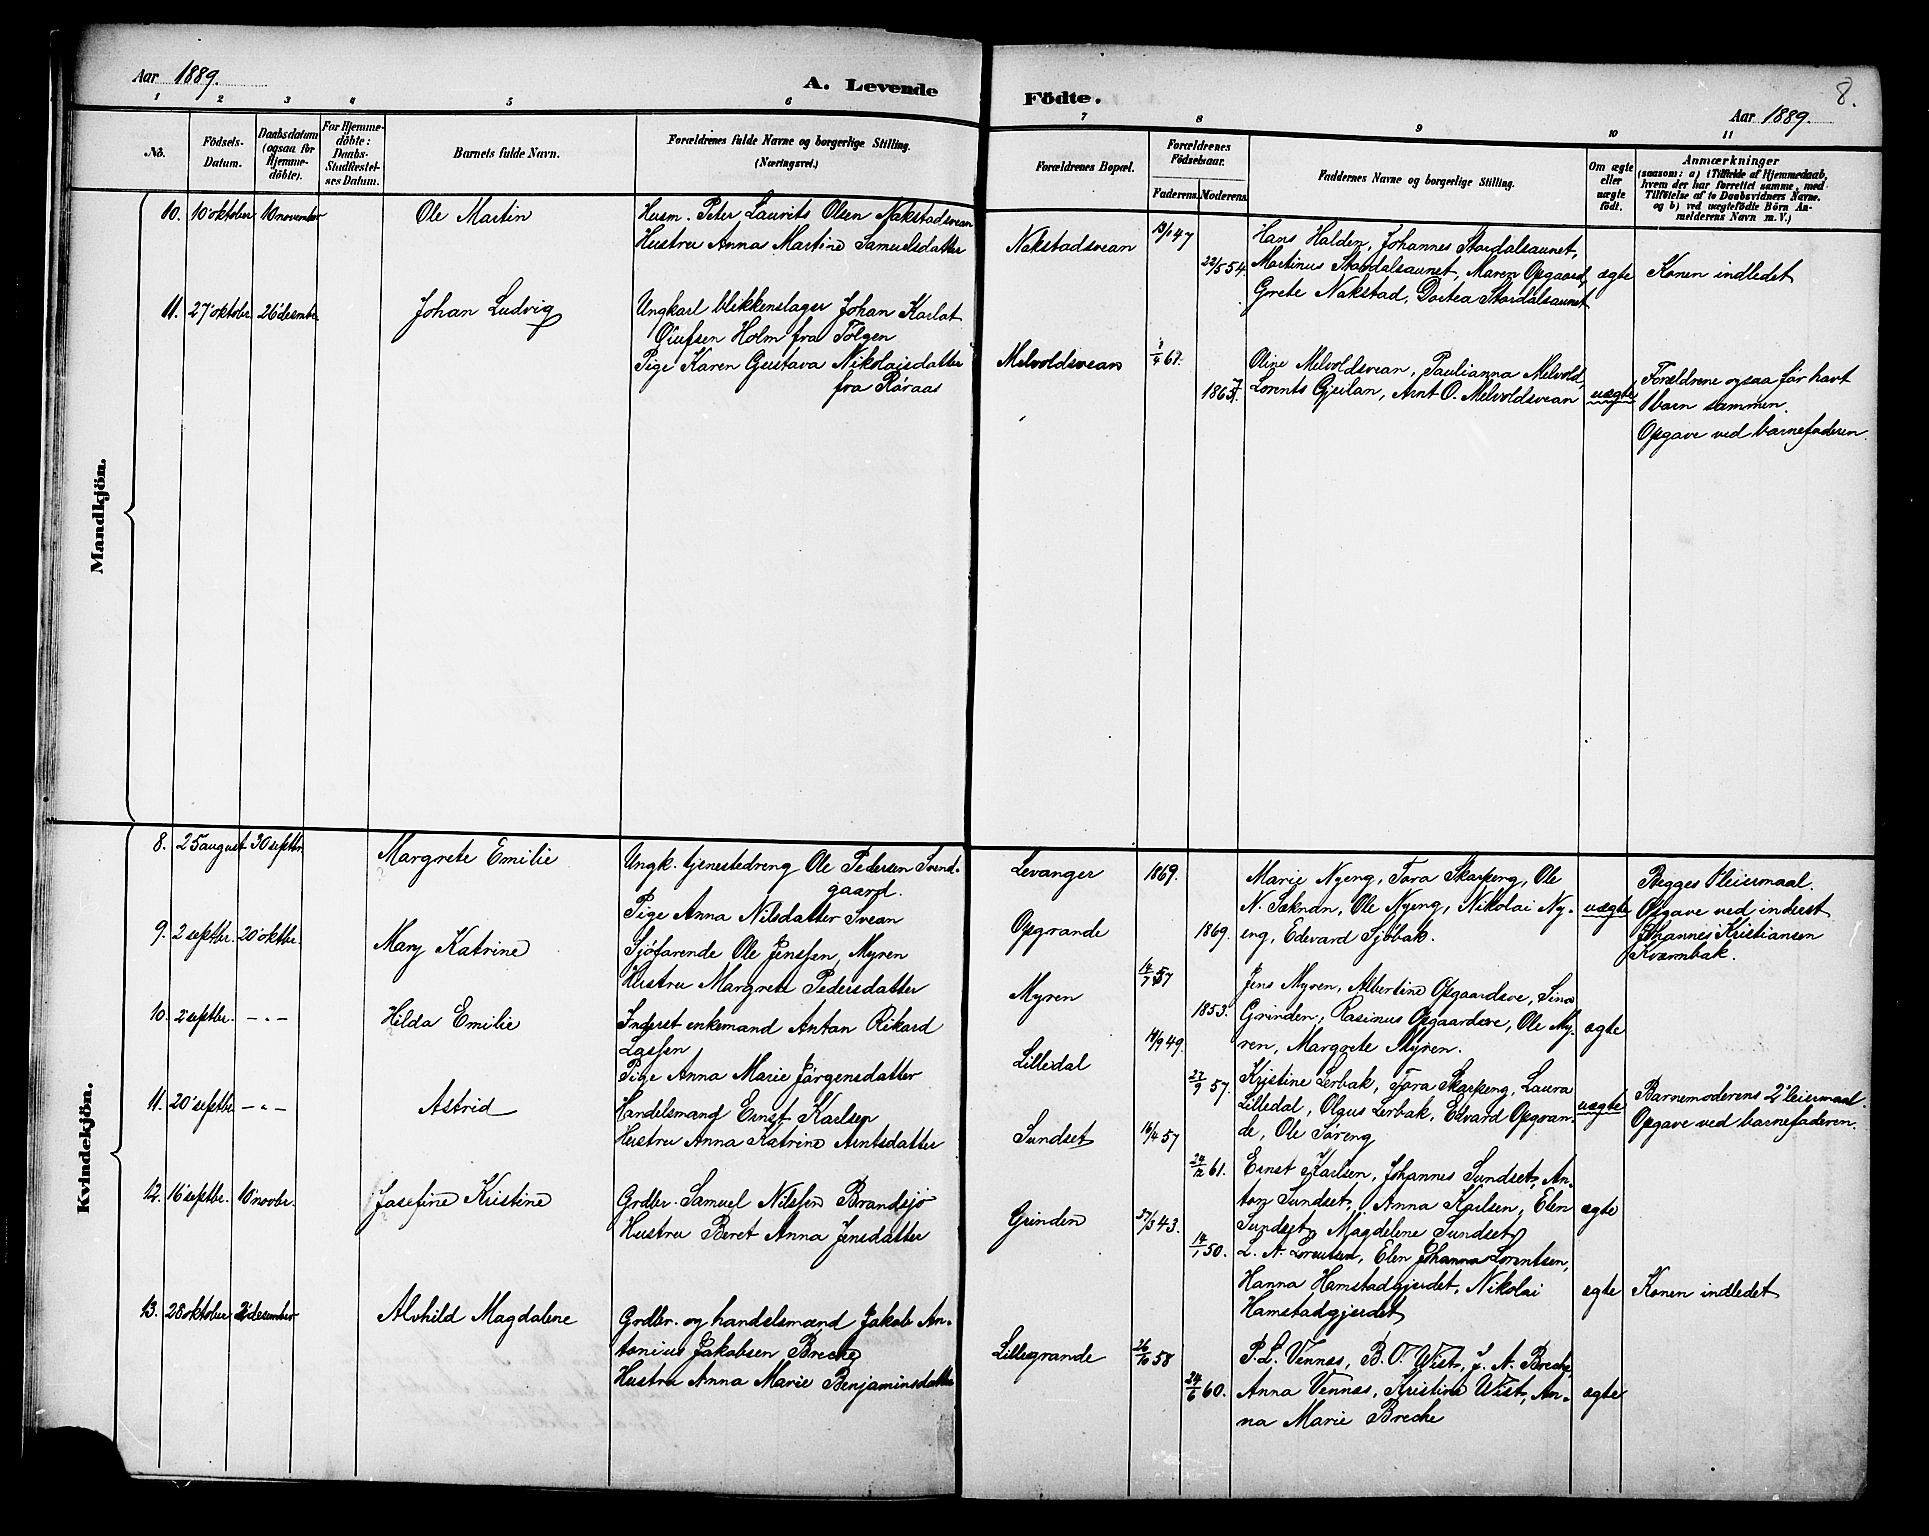 Aar 1889.
A. Levende
Födte.
Aar 1889.
8.
1 2 3 4 5 6 7 8 9 10 11
No.
Födsels-
Datum.
Daabsdatum
(ogsaa for
Hjemme-
döbte).
For Hjemme-
döbte:
Daabs-
Stadfæstel-
ses Datum.
Barnets fulde Navn.
Forældrenes fulde Navne og borgerlige Stilling.
(Næringsvei.)
Forældrenes Bopæl.
Forældrenes
Födselsaar.
Faderens. Moderens.
Faddernes Navne og borgerlige Stilling.
Om ægte
eller
uægte
födt.
Anmærkninger
(saasom: a) i Tilfælde af Hjemmedaab,
hvem der har forrettet samme, med
Tilföielse af to Daabsvidners Navne.
og b) ved uægtefödte Börn An-
melderens Navn m. V.)
Mandkjön.
10. 10 oktober 10 november
Ole Martin
Husm. Peter Laurits Olsen Nakstadsvean
Hustru Anna Martine Samuelsdatter
Nakstadsvean
47
22/5 54.
Hans Halden, Johannes Stordalsaunet,
Martinus Stordalsaunet, Maren Opgaard,
Grete Nakstad, Dortea Stordalsaunet
ægte
Konen indledet
11. 27 oktobr. 26 desembr.
Johan Ludvig
Ungkarl blikkenslager Johan Karlat
Olufsen Holm fra Tolgen
Pige Karen Gustava Nikolaisdatter
fra Røraas
Melvoldsvean
67.
186
Oline Melvoldsvean, Paulianna Melvold,
Lorents Gjeilan, Arnt O. Melvoldsvean
uægte
Forældrene ogsaa før havt
1 barn sammen.
Opgave ved barnefaderen.
Kvindekjön.
8. 25 august 30 septbr.
Margrete Emilie
Ungk. tjenestedreng Ole Pedersen Svend-
gaard.
Pige Anna Nilsdatter Svean
Levanger
Opgrande
1869.
1869.
Marie Nyeng, Tora Skarpeng, Ole
N. Saknan, Ole Nyeng, Nikolai Ny-
eng, Edevard Sjöbak.
uægte
Begges 1 leiermaal.
Opgave ved inderst
Johannes Kristiansen
Kvarnbak.
9. 2 septbr. 20 oktbr.
Mary Katrine
Sjöfarende Ole Jenssen, Myren
Hustru Margrete Pedersdatter
Myren
14/7 57
1853.
Jens Myren, Albertine Opgaardsve, Sina
Grinden, Rasinus Opgaardsve, Ole My-
ren, Margrete Myren.
ægte
10. 2 septbr. - " -
Hilda Emilie
Inderst enkemand Antan Rikard
Lassen
Pige Anna Marie Jörgensdatter
Lilledal
14/9 49.
27/9 57.
Kristine Lerbak, Tora Skarpeng, Laura
Lilledal, Olgus Lerbak, Edvard Opgran-
de, Ole Söreng
uægte
Barnemoderens 2 leiermaal.
Opgave ved barnefaderen.
11. 20 septbr - " -
Astrid
Handelsmand Ernst Karlsen
Hustru Anna Katrine Arntsdatter
Sundset
16/4 57
24/12 61.
Ernst Karlsen, Johannes Sundset, An-
ton Sundset, Anna Karlsen, Elen
Sundset, Magdelene Sundset
ægte
12. 16 septbr. 10 novbr.
Josefine Kristine
Grdbr. Samuel Nilssen Brandsjö
Hustru Beret Anna Jensdatter
Grinden
43.
14/1 50.
L. N. Lorentsen, Elen Johanna Lorentsen,
Hanna Hamstadgjerdet, Nikolai
Hamstadgjerdet
ægte
Konen indledet
13. 28 oktober desember
Alvhild Magdalene
Grdbr. og handelsmand Jakob An-
tonius Jakobsen Breche
Hustru Anna Marie Benjaminsdatter
Lillegrande
26/10 58
24/6 60.
P. L. Vennes, B. O. Wist, J. A. Breche,
Anna Vennes, Kristine Wist, An-
na Marie Breche
ægte